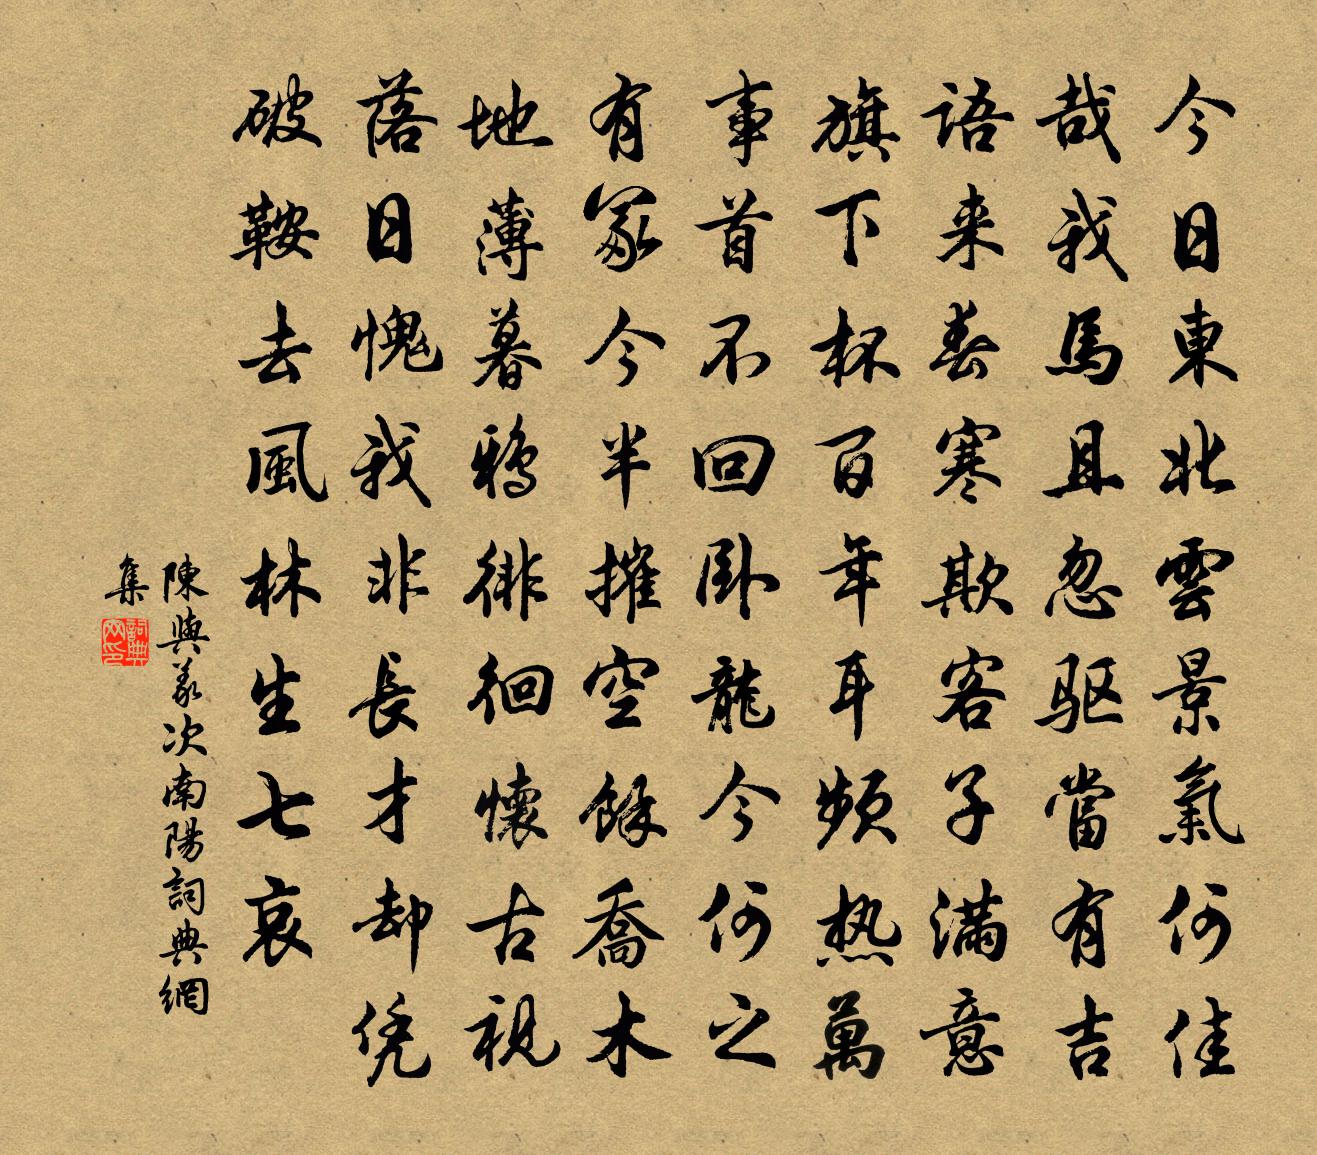 今日東北雲景氣何佳
哉我馬且忽驱當有吉
語来春寒欺客子滿意
旗下杯百年耳頻热萬
事首不回卧龍今何之
有冢今半摧空餘喬木
地薄暮鴉徘徊懷古視
落日愧我非長才却凭
破鞍去風林生七哀
陳與義次南陽詞典網
集
詞典网印